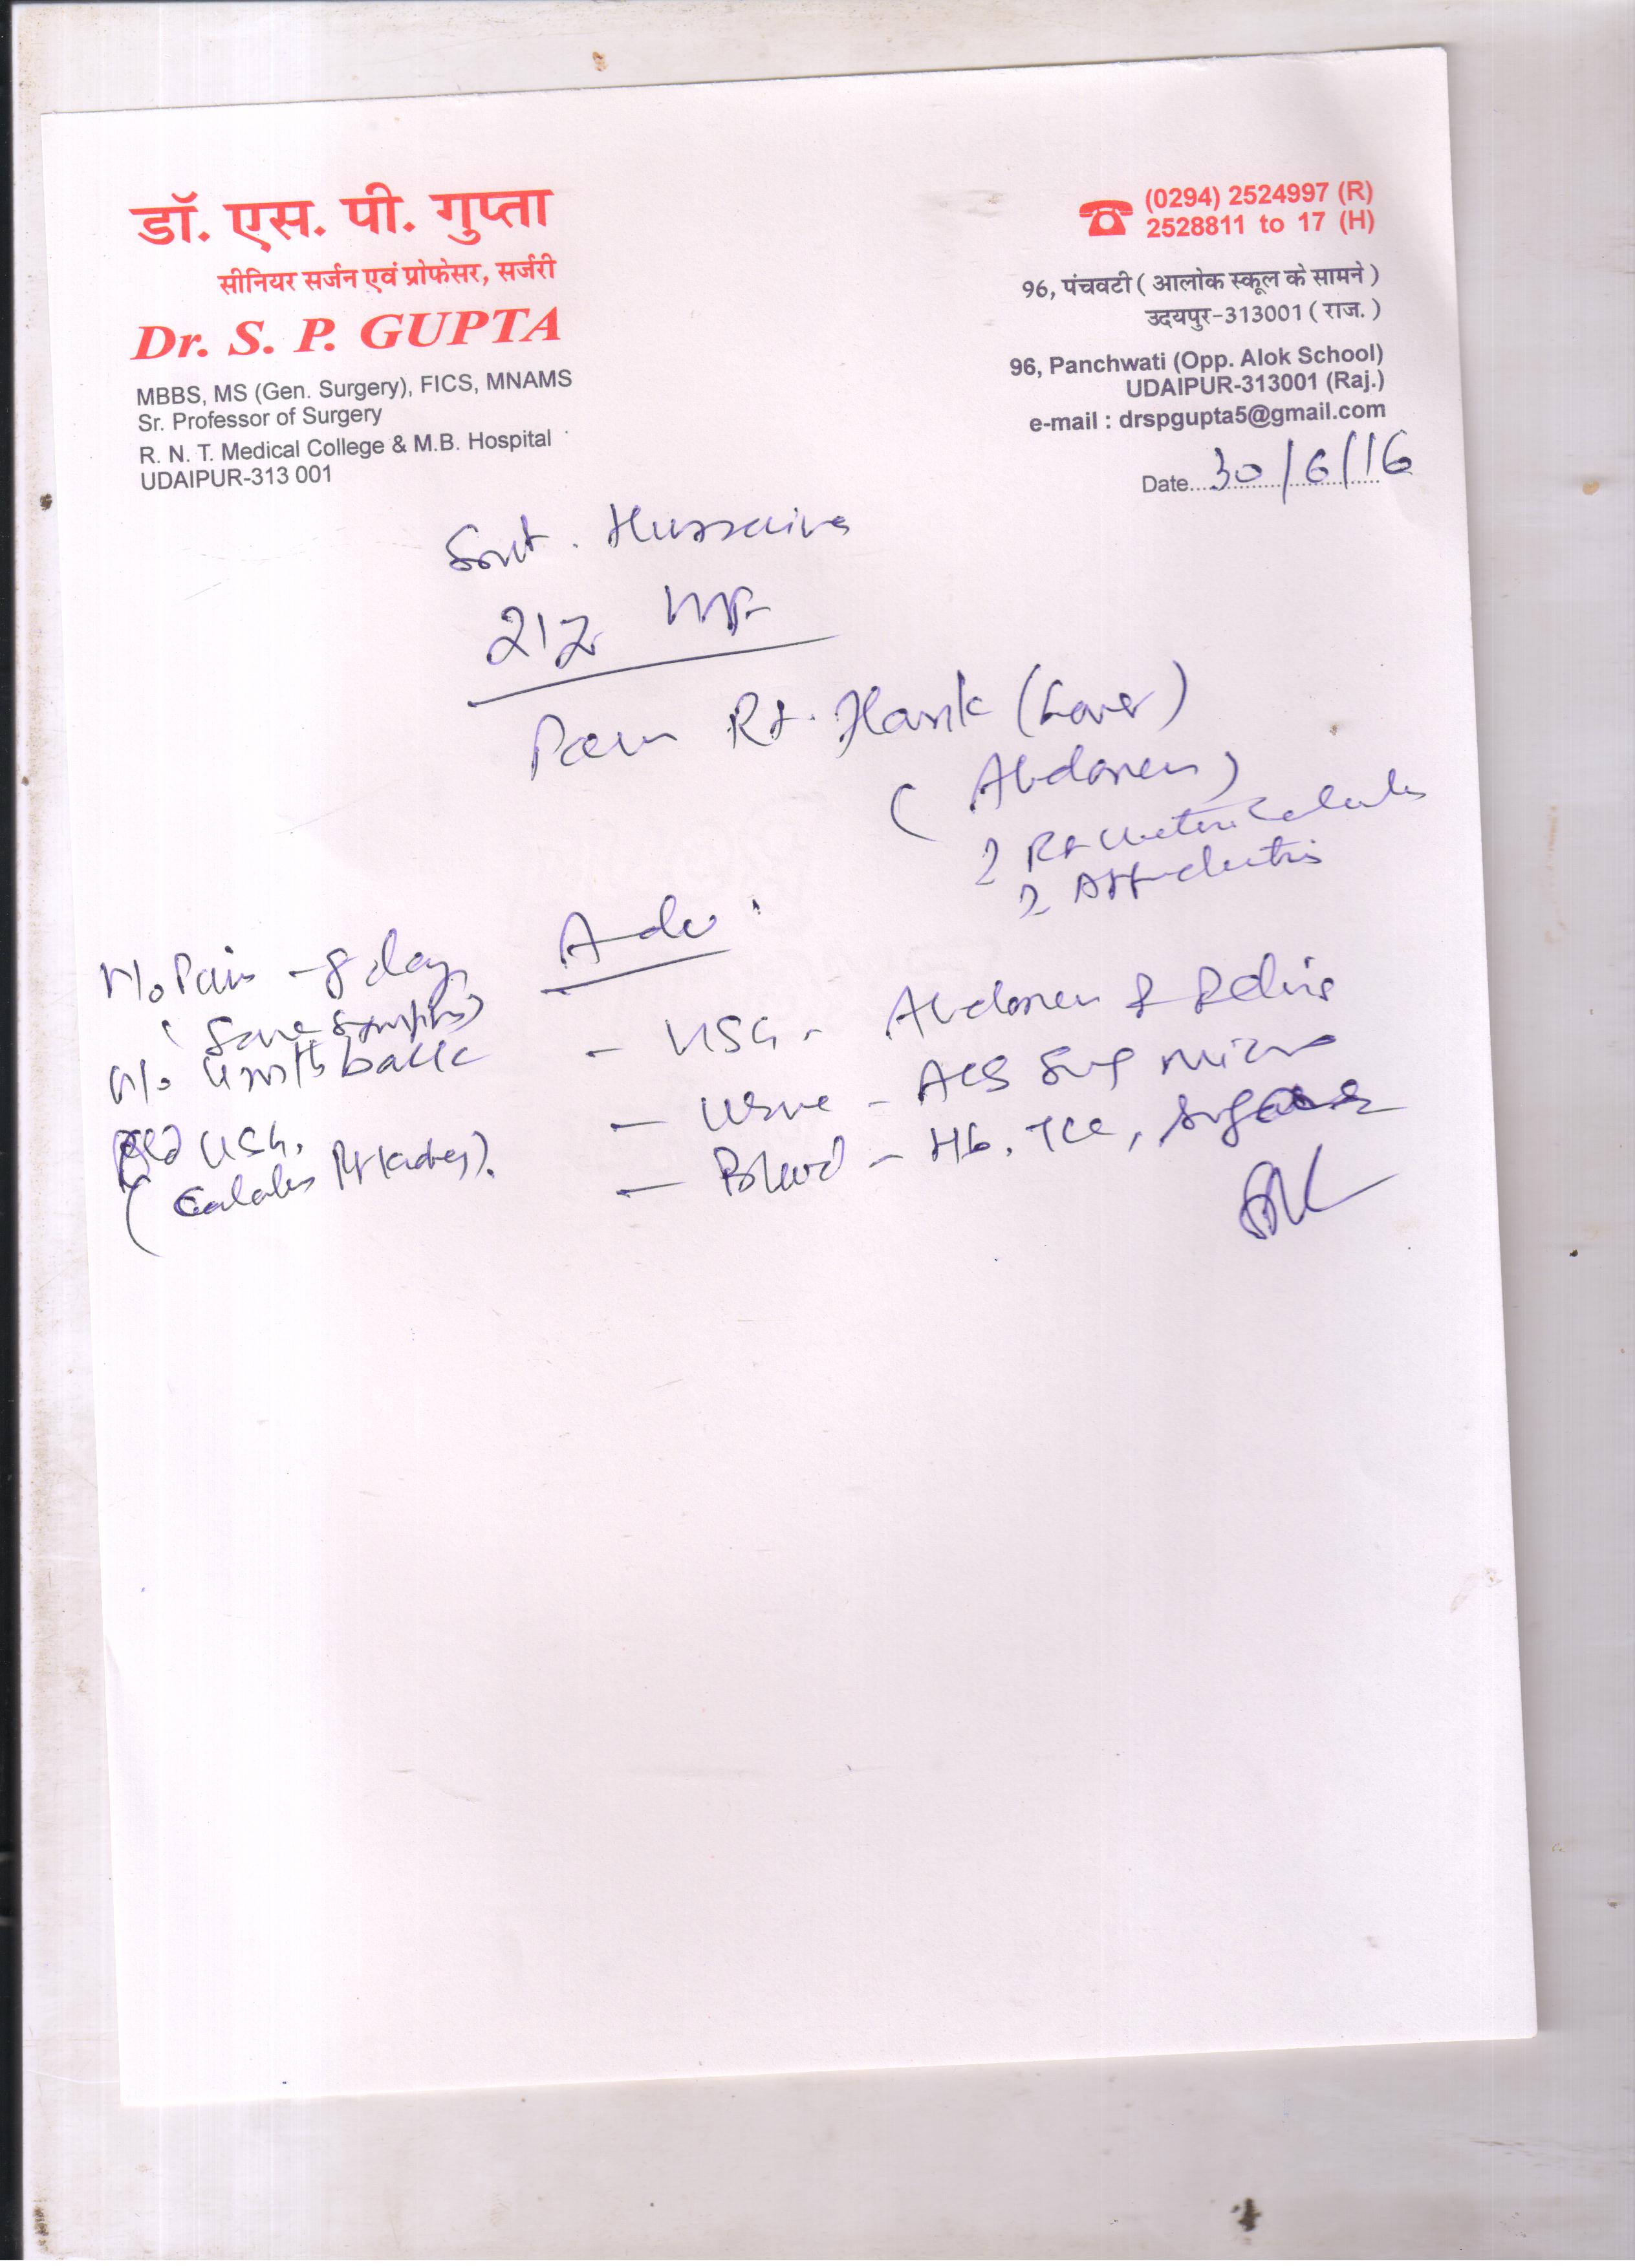 डॉ. एस. पी. गुप्ता
सीनियर सर्जन एवं प्रोफेसर, सर्जरी
Dr. S. P. GUPTA
MBBS, MS (Gen. Surgery), FICS, MNAMS
Sr. Professor of Surgery
R. N. T. Medical College & M.B. Hospital
UDAIPUR-313 001
(0294) 2524997 (R)
2528811 to 17 (H)
96, पंचवटी ( आलोक स्कूल के सामने )
उदयपुर-313001 ( राज. )
96, Panchwati (Opp. Alok School)
UDAIPUR-313001 (Raj.)
e-mail : drspgupta5@gmail.com
Date 30/6/16
Smt. Hussaina
Pain Rt. Flank (Lower)
( Abdomen )
? Rt Ureteric Calculus
? Appendicitis
Adv :
H/o Pain - 8 days
( Same Symptoms )
H/o back
Old USG.
( Calculus Rt Kidney ).
- USG - Abdomen & Pelvis
- Urine - Alb Sug Micro
- Blood - Hb, TLC, Sugar